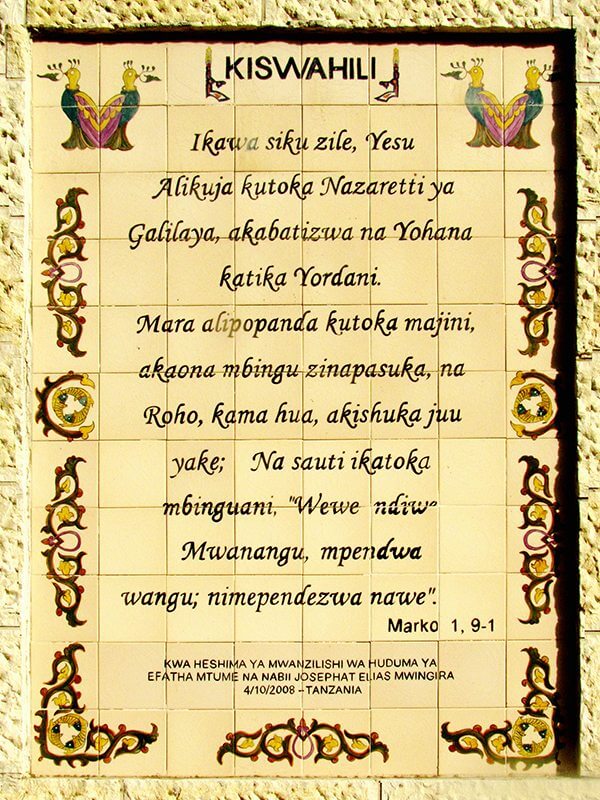 KISWAHILI
Ikawa siku zile, Yesu
Alikuja kutoka Nazaretti ya
Galilaya, akabatizwa na Yohana
katika Yordani.
Mara alipopanda kutoka majini,
akaona mbingu zinapasuka, na
Roho, kama hua, akishuka juu
yake; Na sauti ikatoka
mbinguani, "Wewe ndiwe
Mwanangu, mpendwa
wangu; nimependezwa nawe".
Marko 1, 9-1
KWA HESHIMA YA MWANZILISHI WA HUDUMA YA
EFATHA MTUME NA NABII JOSEPHAT ELIAS MWINGIRA
4/10/2008 – TANZANIA